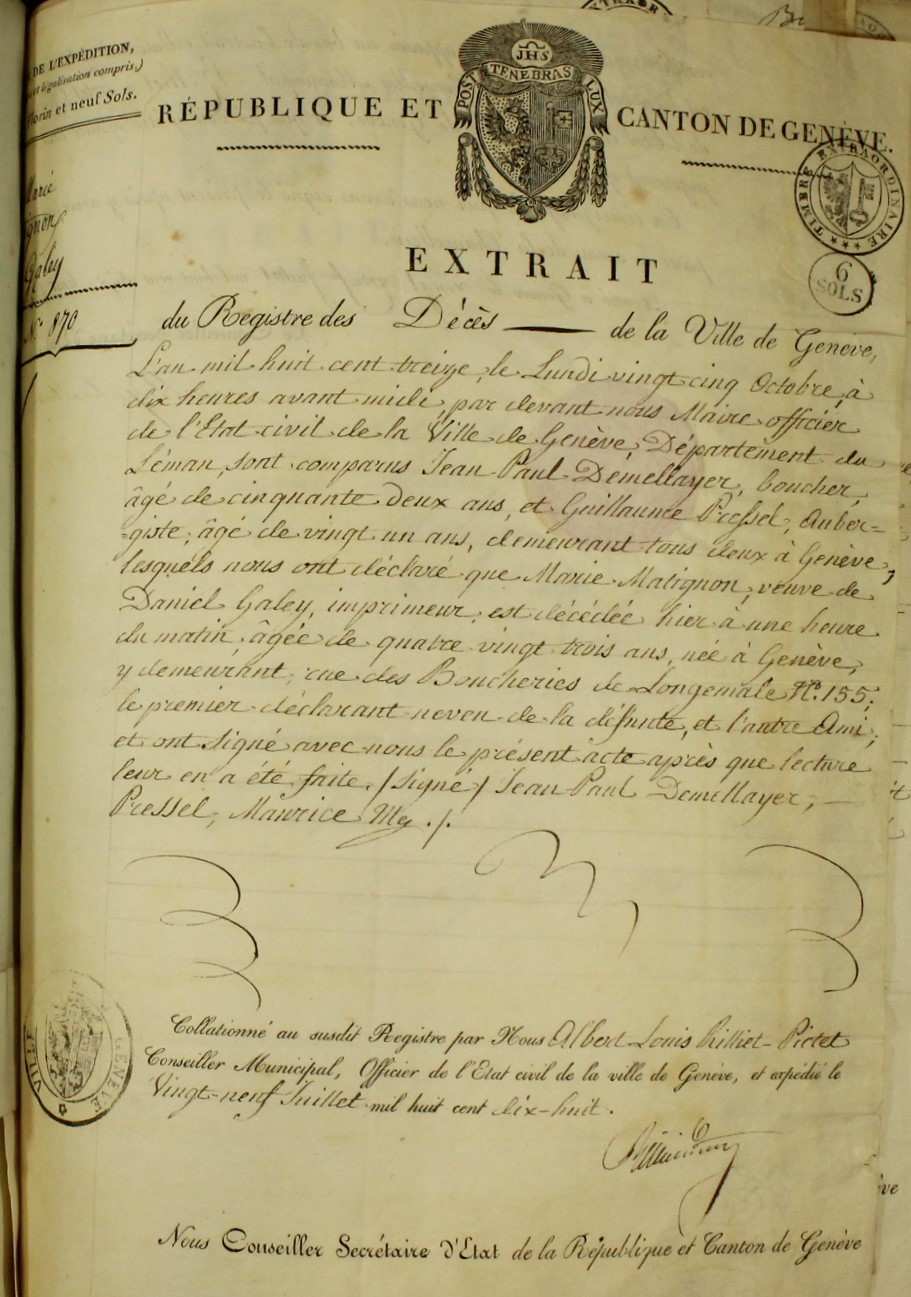 DE L'EXPÉDITION,
et légalisation compris,)
florin et neuf Sols.
JHS
POST TENEBRAS LUX
RÉPUBLIQUE ET CANTON DE GENÈVE.
TIMBRE EXTRAORDINAIRE
6
SOLS
Galey
N.º 870
EXTRAIT
du Registre des Décès de la Ville de Genève,
L'an mil huit cent treize, le Lundi vingt cinq Octobre, à
dix heures avant midi, par devant nous Maire officier
de l'Etat civil de la Ville de Genève, Département du
Léman, sont comparus Jean Paul Demellayer, boucher,
âgé de cinquante deux ans, et Guillaume Pressel, Auber-
-giste, âgé de vingt un ans, demeurant tous deux à Genève,
lesquels nous ont déclaré que Marie Matignon, veuve de
Daniel Galey, imprimeur, est décédée hier à une heure
du matin, âgée de quatre vingt trois ans, née à Genève,
y demeurant, rue des Boucheries de Longemale N.º 155;
le premier déclarant neveu de la défunte, et l'autre Ami,
et ont signé avec nous le présent acte après que lecture
leur en a été faite. /signé/ Jean Paul Demellayer,
Pressel, Maurice My ./.
Collationné au susdit Registre par Nous Albert Louis Rilliet-Pictet
Conseiller Municipal, Officier de l'Etat civil de la ville de Genève, et expédié le
Vingt-neuf Juillet mil huit cent dix-huit.
VILLE GENÈVE
Nous Conseiller Secrétaire d'Etat de la République et Canton de Genève